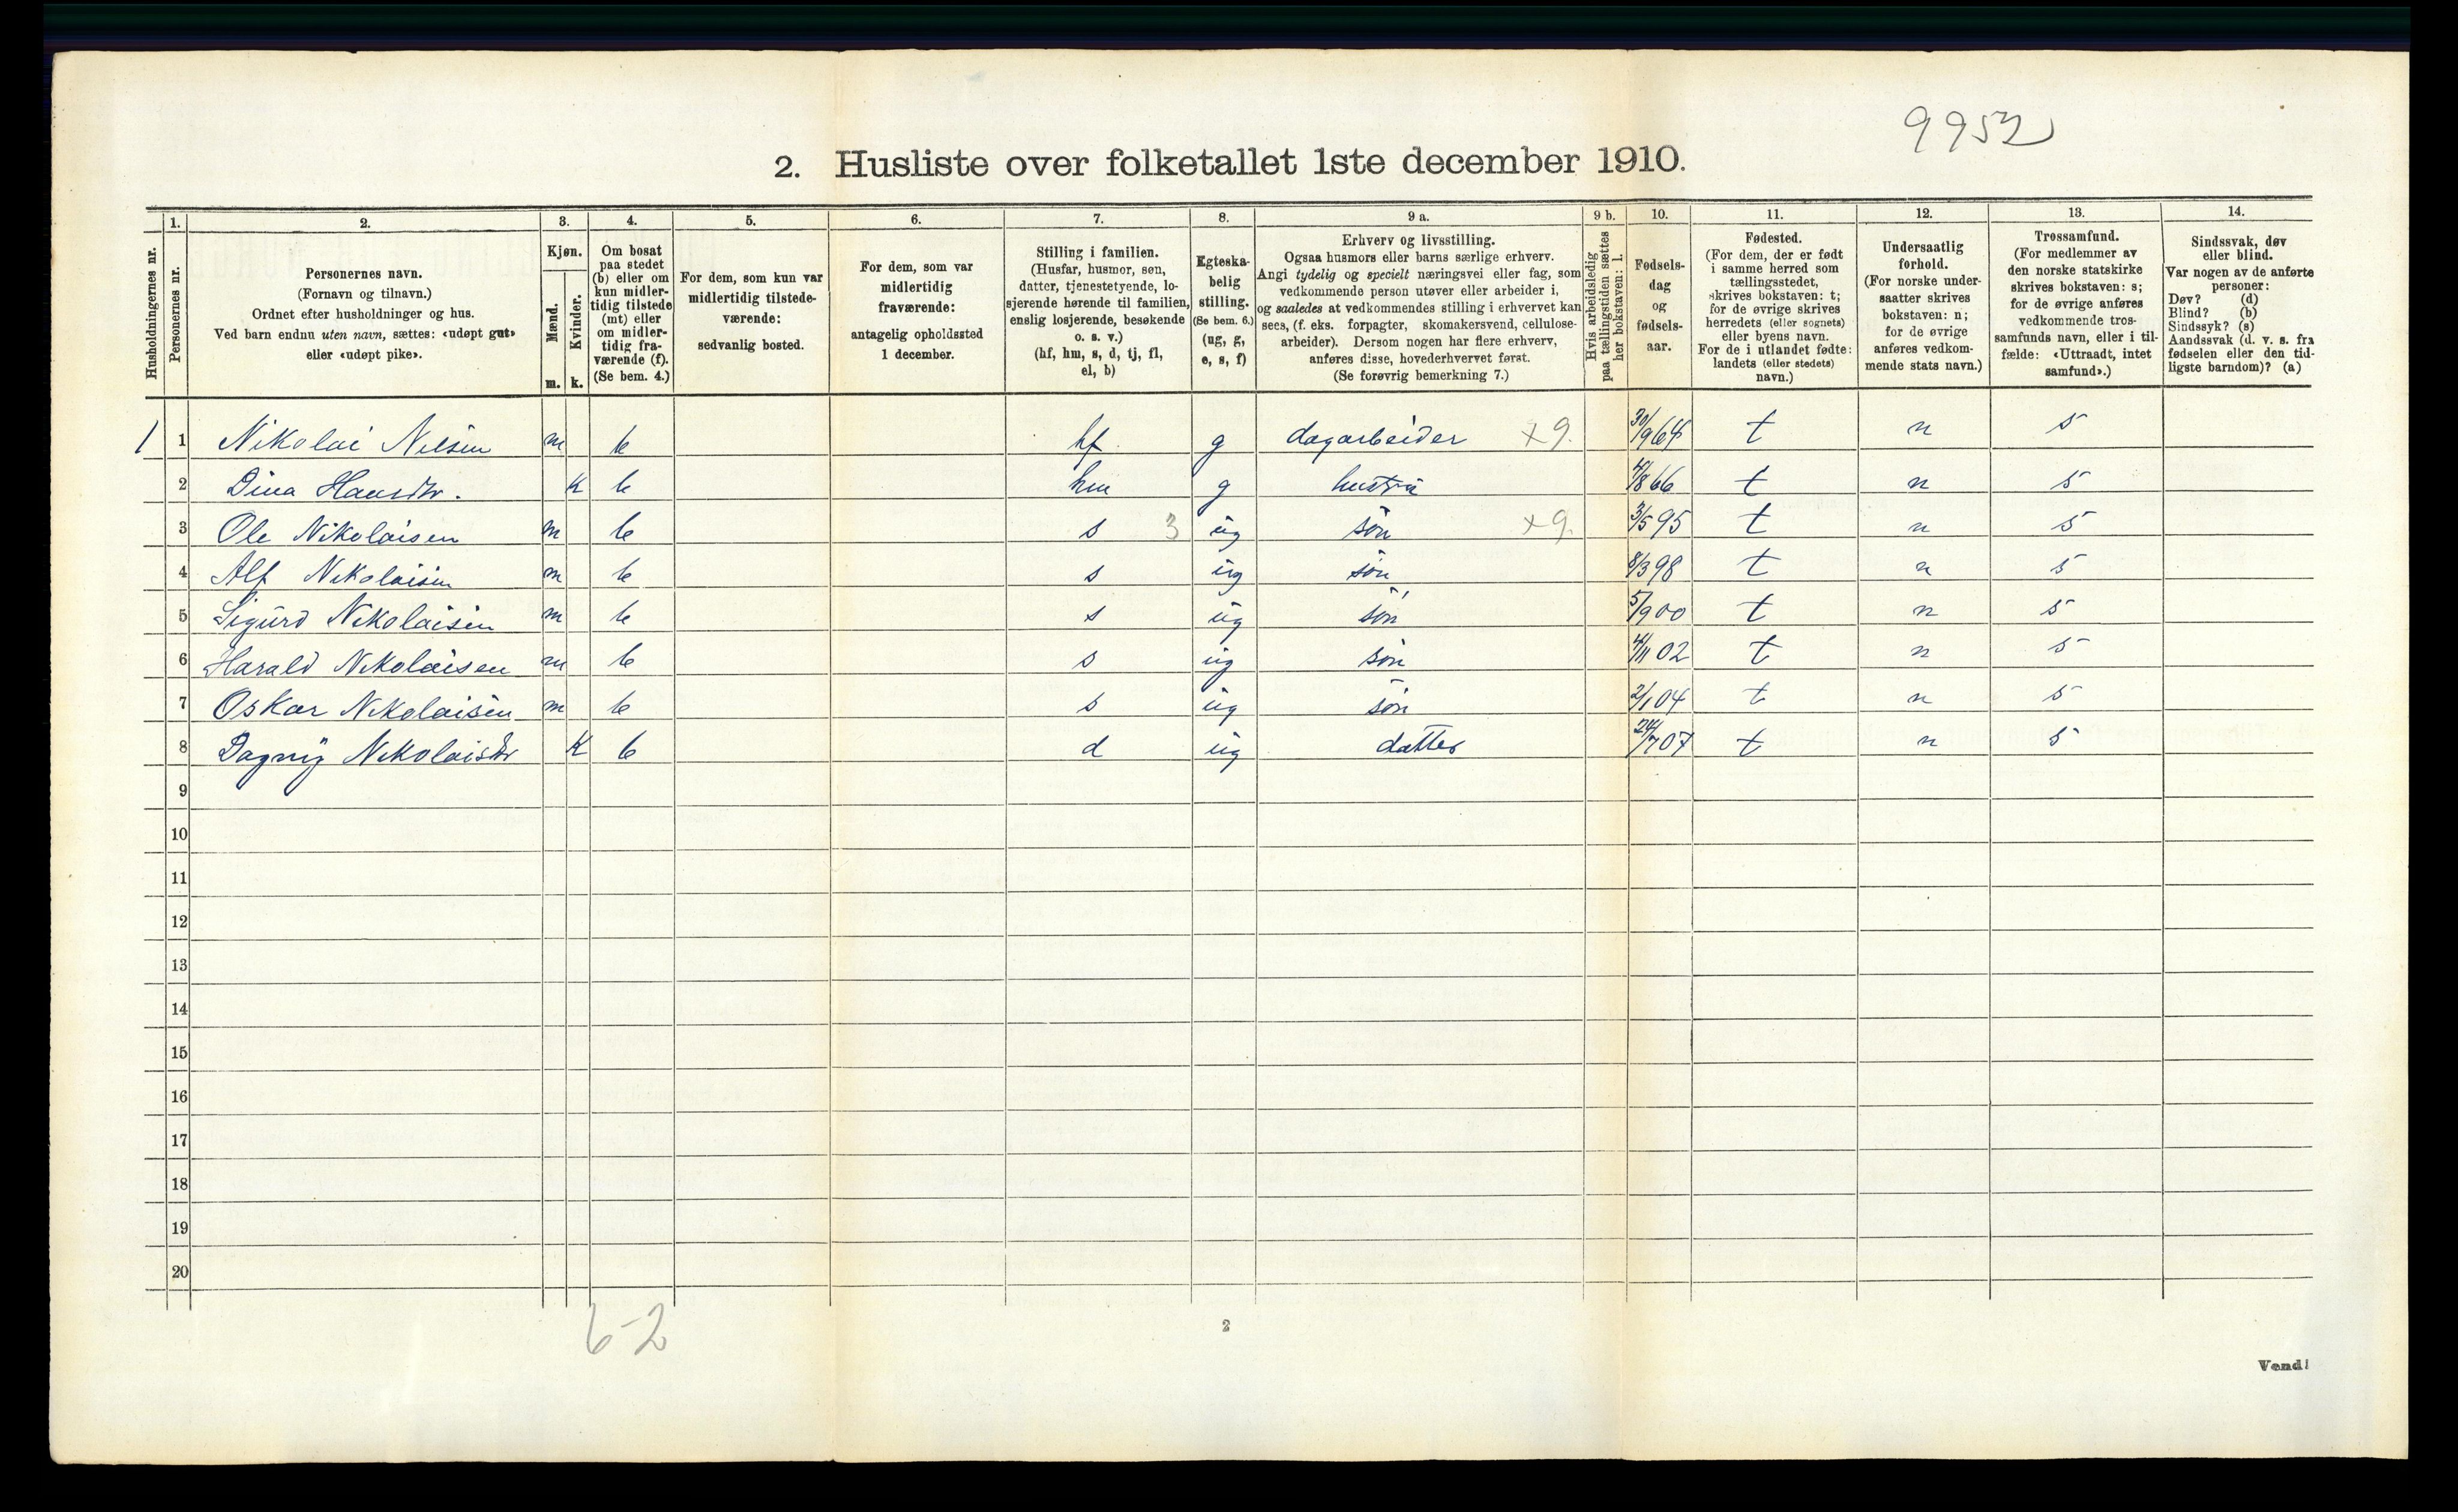 9952
2. Husliste over folketallet 1ste december 1910.
1. 2. 3. 4. 5. 6. 7. 8. 9 a. 9 b. 10. 11. 12. 13. 14.
Husholdningernes nr.
Personernes nr.
Personernes navn.
(Fornavn og tilnavn.)
Ordnet efter husholdninger og hus.
Ved barn endnu uten navn, sættes: «udøpt gut»
eller «udøpt pike».
Kjøn.
Mænd.
Kvinder.
m. k.
Om bosat
paa stedet
(b) eller om
kun midler-
tidig tilstede
(mt) eller
om midler-
tidig fra-
værende (f).
(Se bem. 4.)
For dem, som kun var
midlertidig tilstede-
værende:
sedvanlig bosted.
For dem, som var
midlertidig
fraværende:
antagelig opholdssted
1 december.
Stilling i familien.
(Husfar, husmor, søn,
datter, tjenestetyende, lo-
sjerende hørende til familien,
enslig losjerende, besøkende
o. s. v.)
(hf, hm, s, d, tj, fl,
el, b)
Egteska-
belig
stilling.
(Se bem. 6.)
(ug, g,
e, s, f)
Erhverv og livsstilling.
Ogsaa husmors eller barns særlige erhverv.
Angi tydelig og specielt næringsvei eller fag, som
vedkommende person utøver eller arbeider i,
og saaledes at vedkommendes stilling i erhvervet kan
sees, (f. eks. forpagter, skomakersvend, cellulose-
arbeider). Dersom nogen har flere erhverv,
anføres disse, hovederhvervet først.
(Se forøvrig bemerkning 7.)
Hvis arbeidsledig
paa tællingstiden sættes
her bokstaven: l.
Fødsels-
dag
og
fødsels-
aar.
Fødested.
(For dem, der er født
i samme herred som
tællingsstedet,
skrives bokstaven: t;
for de øvrige skrives
herredets (eller sognets)
eller byens navn.
For de i utlandet fødte:
landets (eller stedets)
navn.)
Undersaatlig
forhold.
(For norske under-
saatter skrives
bokstaven: n;
for de øvrige
anføres vedkom-
mende stats navn.)
Trossamfund.
(For medlemmer av
den norske statskirke
skrives bokstaven: s;
for de øvrige anføres
vedkommende tros-
samfunds navn, eller i til-
fælde: «Uttraadt, intet
samfund».)
Sindssvak, døv
eller blind.
Var nogen av de anførte
personer:
Døv? (d)
Blind? (b)
Sindssyk? (s)
Aandssvak (d. v. s. fra
fødselen eller den tid-
ligste barndom)? (a)
1 1 Nikolai Nilsen m b hf. g dagarbeider x9. 30/9 64 t n s
2 Dina Hansdtr. k b hm g hustru 4/8 66 t n s
3 Ole Nikolaisen m b s 3 ug søn x9. 3/5 95 t n s
4 Alf Nikolaisen m b s ug søn 8/3 98 t n s
5 Sigurd Nikolaisen m b s ug søn 5/9 00 t n s
6 Harald Nikolaisen m b s ug søn 4/11 02 t n s
7 Oskar Nikolaisen m b s ug søn 2/1 04 t n s
8 Dagny Nikolaisdtr k b d ug datter 24/7 07 t n s
9
10
11
12
13
14
15
16
17
18
19
20
6-2
2
Vend!